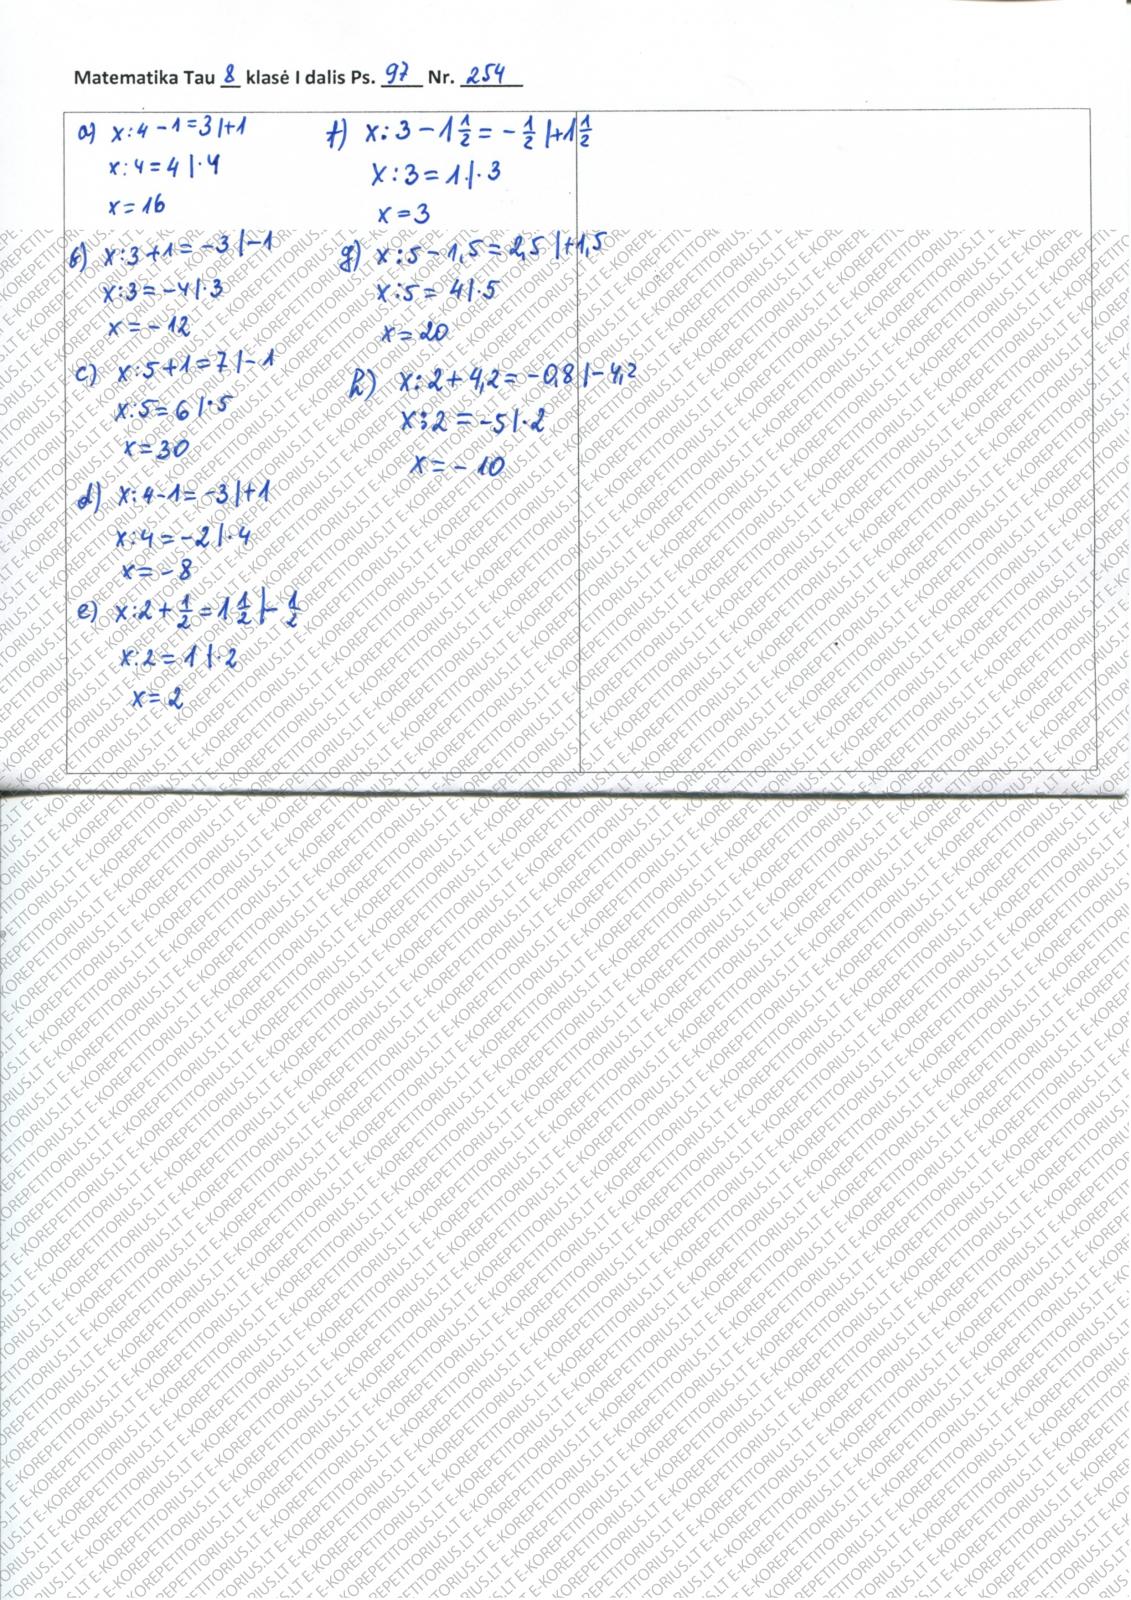 Matematika Tau 8 klasė I dalis Ps. 97 Nr. 254
a) x:4-1=3|+1
x:4=4|·4
x=16
b) x:3+1=-3|-1
x:3=-4|·3
x=-12
c) x:5+1=7|-1
x:5=6|·5
x=30
d) x:4-1=-3|+1
x:4=-2|·4
x=-8
e) x:2+1/2=1 1/2|-1/2
x:2=1|·2
x=2
f) x:3-1 1/2=-1/2|+1 1/2
x:3=1|·3
x=3
g) x:5-1,5=2,5|+1,5
x:5=4|·5
x=20
h) x:2+4,2=-0,8|-4,2
x:2=-5|·2
x=-10
E-KOREPETITORIUS.LT